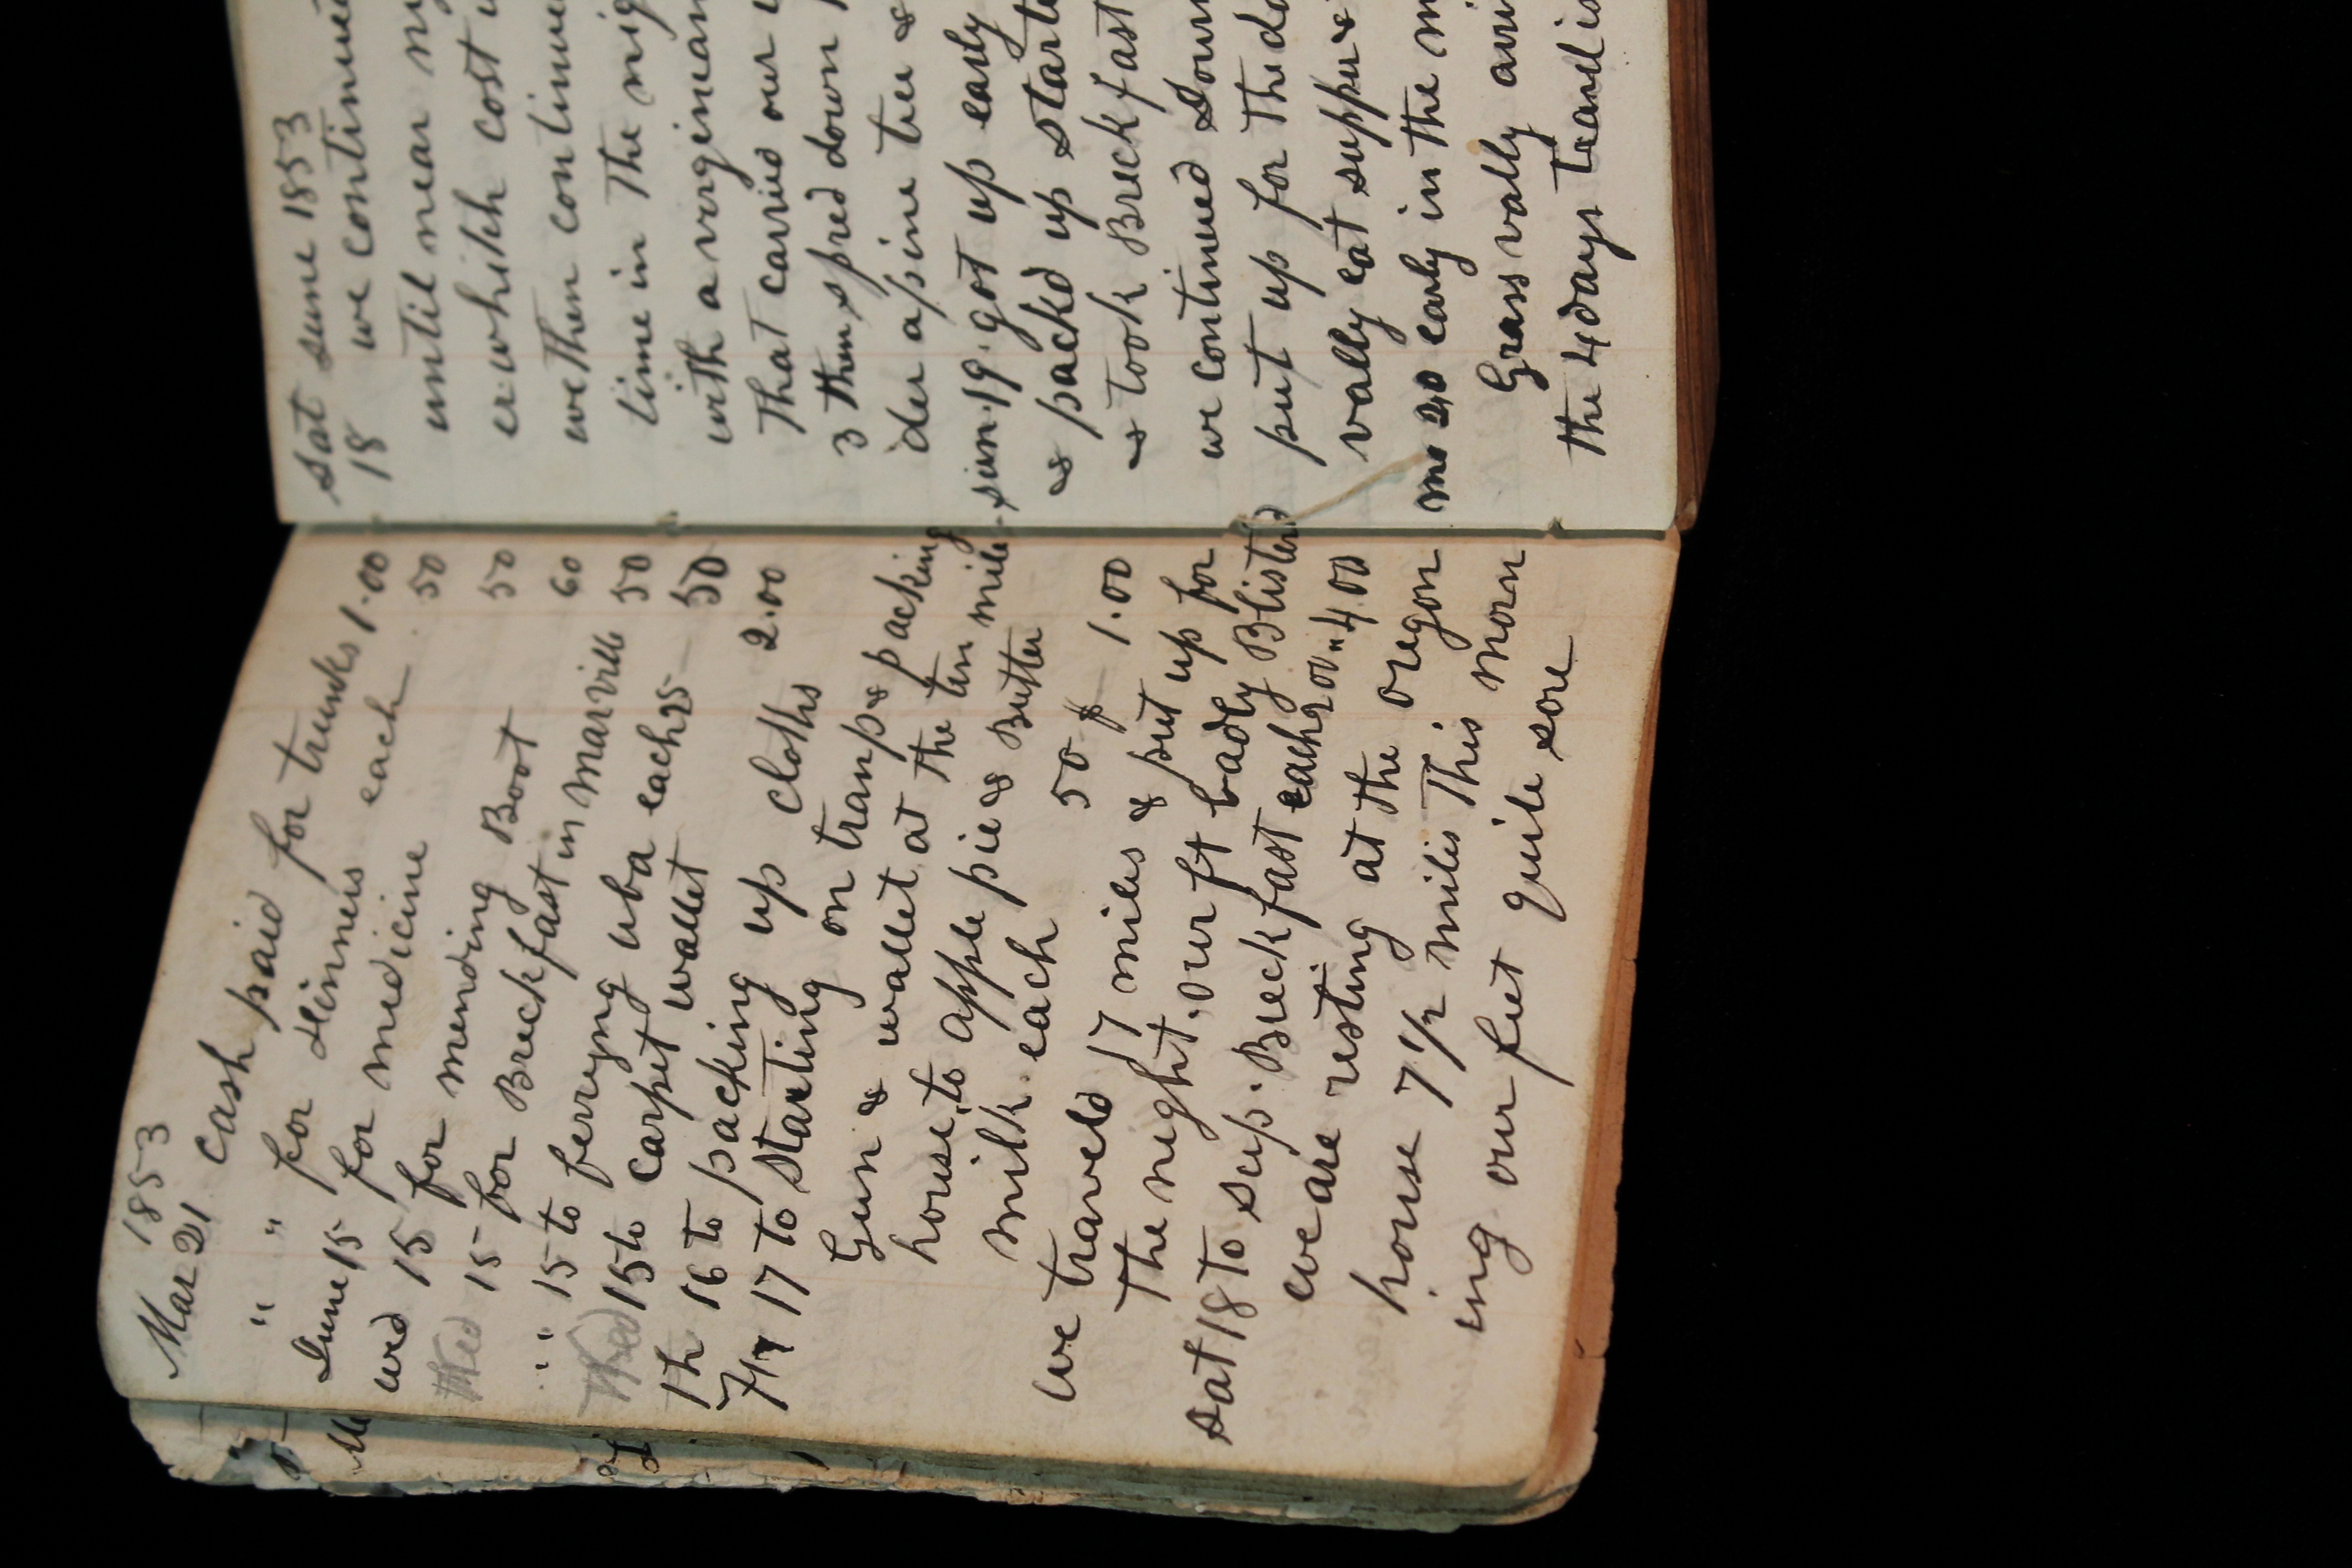 1853
Mar 21 cash paid for trunks 1.00
" " for Dinners each 50
June 15 for medicine 50
wed 15 for mending Boot 60
Wed 15 for Breckfast in marville 50
" 15 to ferryng uba each 25 50
Wed 15 to carpet wallet 2.00
Th 16 to packing up cloths
17 to Starting on tranp & packing
Gun & wallet at the ten mile
house, to apple pie & Butter
milk. each 50 $ 1.00
we traveld 17 miles & put up for
The night. our ft badly Blisterd
Sat 18 to sup. Breckfast each 2 00 " 4.00
we are resting at the oregon
house 7 1/2 miles This morn
ing our feet quite sore
Sat June 1853
18 we continued
until near
er whitch cost
we Then continue
time in The nig
with a virginian
That carried our
3 then spred down
der a pine tree &
sun. 19. got up early
& packd up starte
& took Breckfast
we continued Journ
put up for the da
vally eat supper &
mo 20 early in the m
Grass vally arri
the 4 days travel is